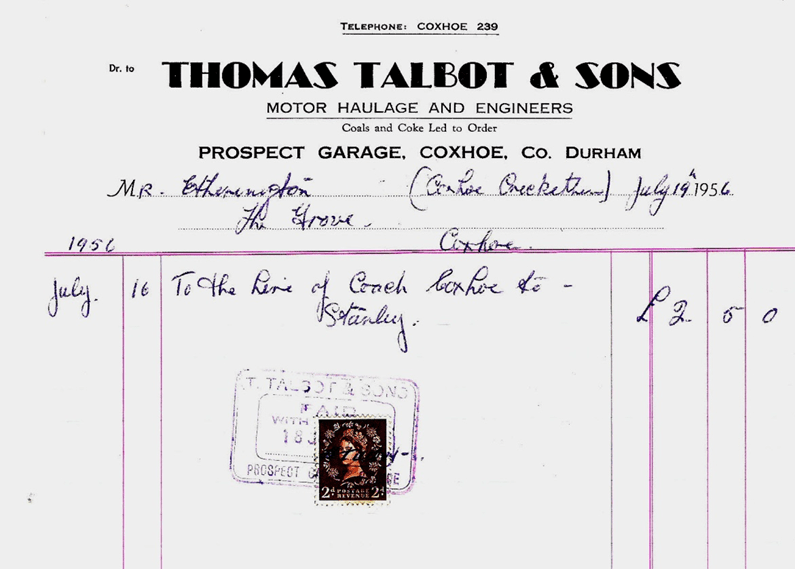 TELEPHONE: COXHOE 239
Dr. to THOMAS TALBOT & SONS
MOTOR HAULAGE AND ENGINEERS
Coals and Coke Led to Order
PROSPECT GARAGE, COXHOE, Co. DURHAM
MR. Etherington (Coxhoe Cricket) July 19th 1956
The Grove.
1956 Coxhoe.
July. 16 To the hire of Coach Coxhoe to - £ 2 5 0
Stanley.
T. TALBOT & SONS
PAID
WITH
18 J
PROSPECT
2d POSTAGE REVENUE 2d